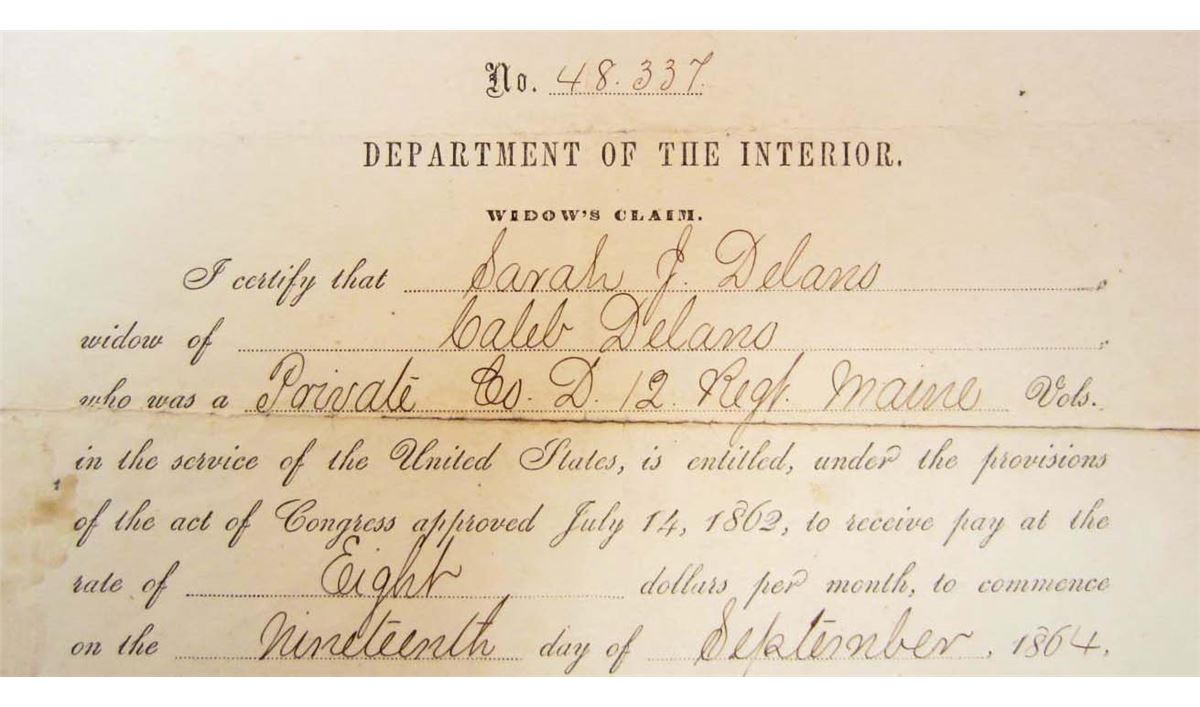 No. 48.337.
DEPARTMENT OF THE INTERIOR.
WIDOW'S CLAIM.
I certify that Sarah J. Delano,
widow of Caleb Delano,
who was a Private Co. D. 12 Regt. Maine Vols.
in the service of the United States, is entitled, under the provisions
of the act of Congress approved July 14, 1862, to receive pay at the
rate of Eight dollars per month, to commence
on the Nineteenth day of September, 1864,